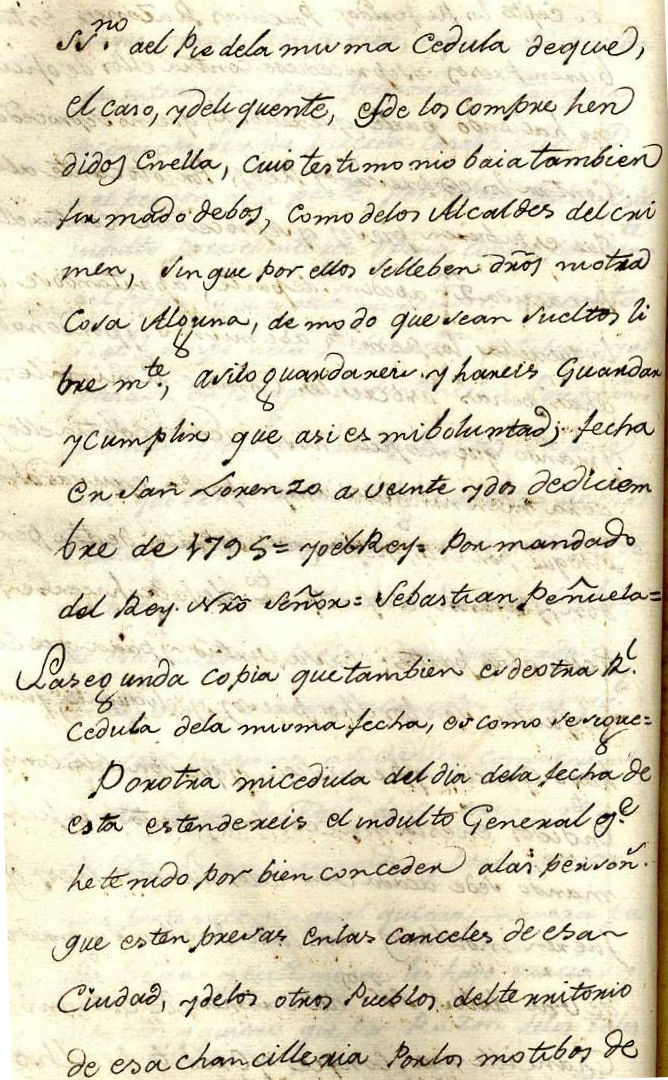 SS.no ael Pie dela misma Cedula deque,
el caso, ydelinquente, esde los compre hen
didos enella, cuio testimonio baia tambien
firmado debos, como delos Alcaldes del cri
men, sin que por ellos selleben dr̃os niotra
Cosa Alguna, de modo que sean sueltos li
bre mte, asilo guardareis y hareis Guardar
ycumplir que asi es miboluntad; fecha
en San Lorenzo a veinte ydos dediciem
bre de 1795= yoel Rey= Por mandado
del Rey Nrõ Señor= Sebastian Peñuela=
Lasegunda copia quetambien esdeotra Rl.
cedula dela misma fecha, es como sesigue=
Porotra micedula del dia dela fecha de
esta estendereis el indulto General qe
hetenido por bien conceder alas person.s
que esten presas enlas carceles de esa
Ciudad, ydelos otros Pueblos delterritorio
de esa chancilleria Porlos motibos de